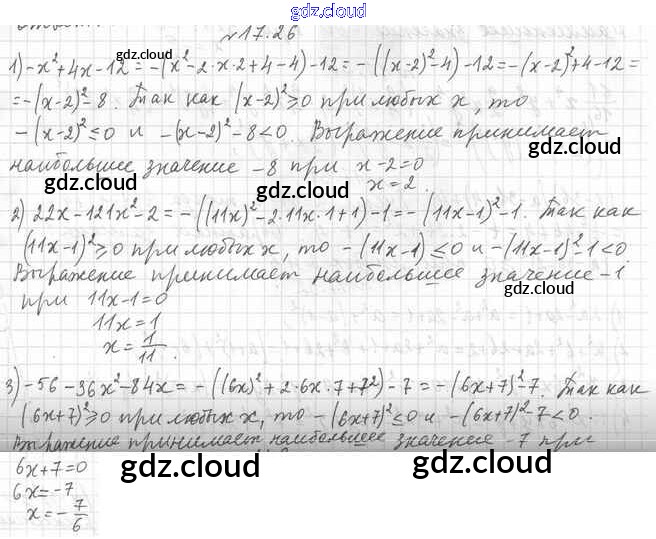 gdz.cloud
№17.26
gdz.cloud
1) -x²+4x-12 = -(x²-2·x·2+4-4)-12 = -((x-2)²-4)-12 = -(x-2)²+4-12 =
= -(x-2)²-8. Так как (x-2)²≥0 при любых x, то
-(x-2)²≤0 и -(x-2)²-8<0. Выражение принимает
gdz.cloud
наибольшее значение -8 при x-2=0
gdz.cloud gdz.cloud
x=2.
2) 22x-121x²-2 = -((11x)²-2·11x·1+1)-1 = -(11x-1)²-1. Так как
(11x-1)²≥0 при любых x, то -(11x-1)≤0 и -(11x-1)²-1<0.
Выражение принимает наибольшее значение -1
gdz.cloud
при 11x-1=0
11x=1
x=1/11.
3) -56-36x²-84x = -((6x)²+2·6x·7+7²)-7 = -(6x+7)²-7. Так как
(6x+7)²≥0 при любых x, то -(6x+7)²≤0 и -(6x+7)²-7<0.
Выражение принимает наибольшее значение -7 при
6x+7=0
gdz.cloud gdz.cloud
6x=-7
x=-7/6